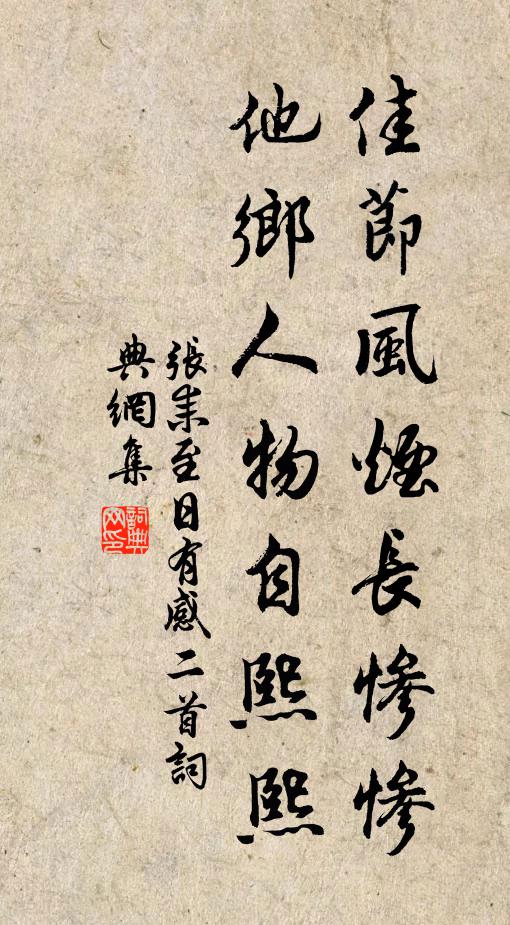 佳節風煙長慘慘
他鄉人物自熙熙
張耒至日有感二首詞
典網集
詞典网印